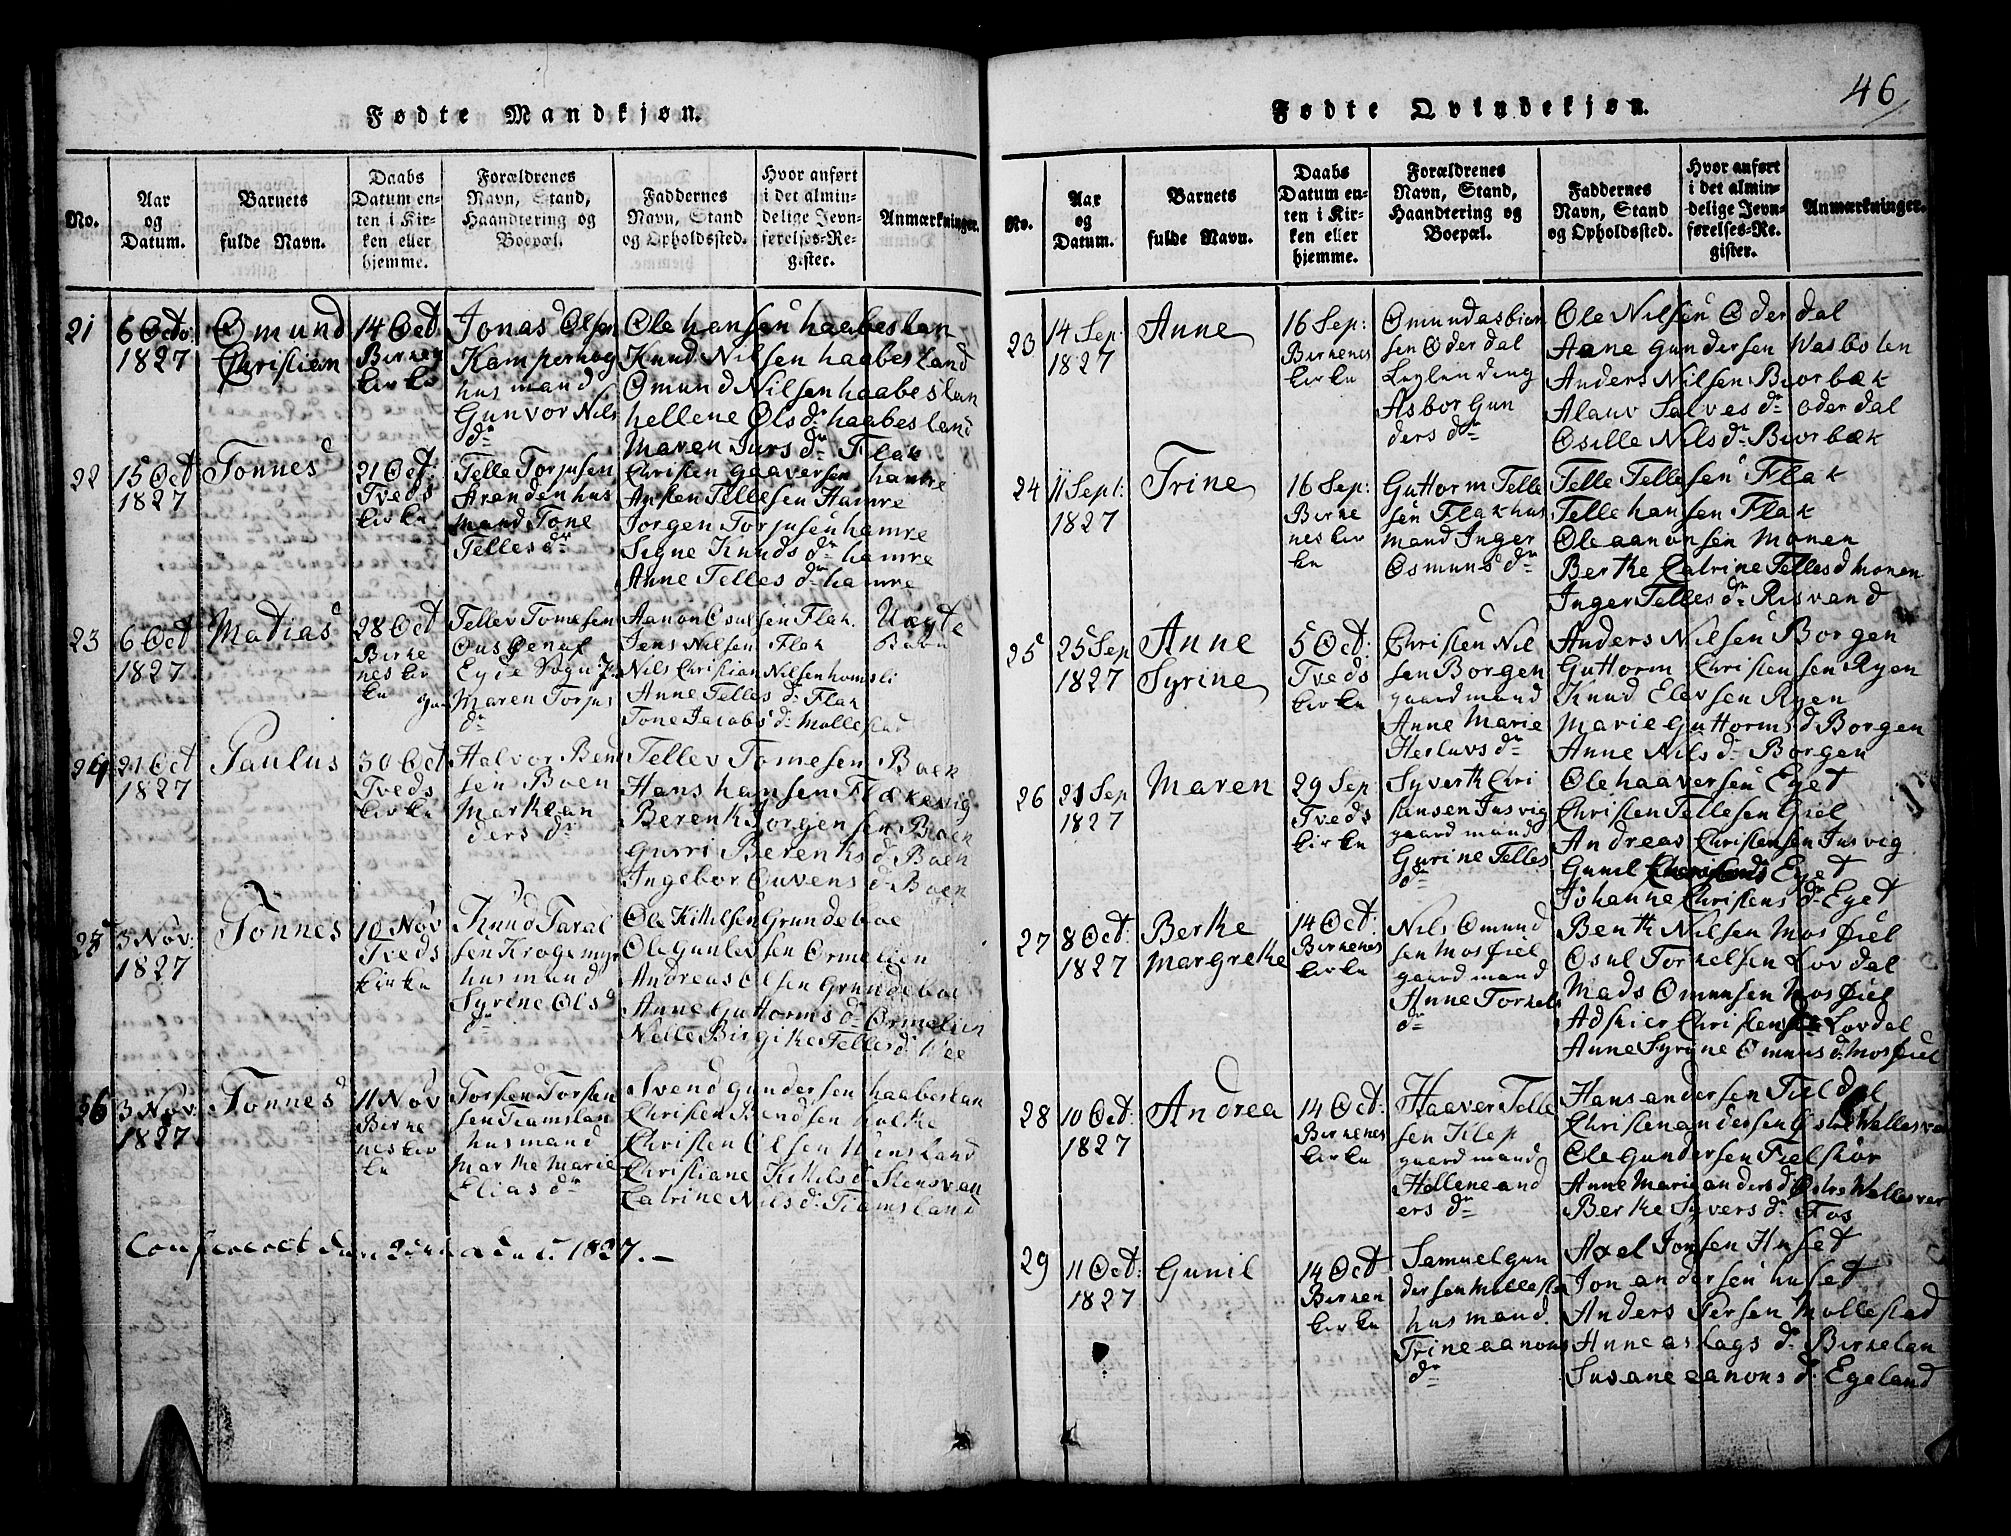 46
Fødte Mandkjøn.
No.
Aar
og
Datum.
Barnets
fulde Navn.
Daabs
Datum en-
ten i Kir-
ken eller
hjemme.
Forældrenes
Navn, Stand,
Haandtering og
Boepæl.
Faddernes
Navn, Stand
og Opholdssted.
Hvor anført
i det almin-
delige Jevn-
førelses-Re-
gister.
Anmærkninger.
21
6 Octo:
1827
Omund
Christian
14 Oct
Birkenes
kirke
Jonas Olsen
Kamperhog
husmand
Gunvor Nils
dr
Ole hansen haabeslan
Knud Nilsen haabesland
Omund Nilsen haabeslan
hellene Ols dr haabesland
Maren Jurs dr Flak
22
15 Oct
1827
Tonnes
21 Oct:
Tveds
kirke
Telle Torjusen
hus
mand Tone
Telles dr
Christen gaaversen hamre
Ansten Tellesen Hamre
Jorgen Torjusen hamre
Signe Knuds dr hamre
Anne Telles dr hamre
23
6 Oct
1827
Matias
28 Oct
Birke
nes kir
ke
Tellev Tomesen
af
Eyde Sogn
Maren Torjus
dr
Aanon Osulsen Flak.
Jens Nilsen Flak
Nils Christian Nilsen homsli
Anne Telles dr Flak
Tone Jacobs dr Mollestad
Uægte
24
21 Oct
1827
Paulus
30 Oct
Tveds
kirke
Halvor Ben
sen Boen
Marthe an
ders dr
Tellev Tomesen Boen
Hans hansen Flakevig
Berent Jorgensen Boen
Gurri Berents d Boen
Ingebor Ouvens d Boen
25
3 Nov:
1827
Tonnes
10 Nov
Tveds
kirke
Knud Taral
sen Krogemyr
husmand
Syrine Ols
dr
Ole Kittilsen Grundeboe
Ole Gunlevsen Ormelien
Andreas Olsen Grundeboe
Anne Guttorms dr Ormelien
Nelle Birgitke Telles d Wee
26
3 Nov:
1827
Tonnes
11 Nov
Birke
nes kir
ke
Torsten Torsten
sen Tiamslan
husmand
Marthe Marie
Elias dr
Svend gundersen haabeslan
Christen Bendsen holte
Christen Olsen Wensland
Christiane Kittils d Stensvan
Catrine Nils d Tiamsland
1827.—
Fødte Qvindekjøn.
No.
Aar
og
Datum.
Barnets
fulde Navn.
Daabs
Datum en-
ten i Kir-
ken eller
hjemme.
Forældrenes
Navn, Stand,
Haandtering og
Boepæl.
Faddernes
Navn, Stand
og Opholdssted.
Hvor anført
i det almin-
delige Jevn-
førelses-Re-
gister.
Anmærkninger.
23
14 Sep:
1827
Anne
16 Sep:
Birkenes
kirke
Omund asbiorn
sen Oderdal
Leylending
Asbor Gun
ders dr
Ole Nilsen Oderdal
Aane Gundersen Wasboten
Anders Nilsen Biorbæk
Alauv Salves dr oderdal
Osille Nils dr Biorbæk
24
11 Sept:
1827
Trine
16 Sep:
Birke
nes kir
ke
Guttorm Telle
sen Flak hus
mand Inger
Osmuns dr
Telle Tellesen Flak
Telle hansen Flak
Ole aanonsen Monen
Berthe Catrine Telles d Monen
Inger Telles dr Risvand
25
25 Sep
1827
Anne
Syrine
5 Oct:
Tveds
kirke
Christen Nil
sen Borgen
gaardmand
Anne Marie
Herluvs dr
Anders Nilsen Borgen
Guttorm Christensen Ryen
Knud Elevsen Ryen
Marie Guttorms d Borgen
Anne Nils dr Borgen
26
21 Sep
1827
Maren
29 Sep
Tveds
kirke
Syvert Chri
stensen Jusvig
gaardmand
Gurine Telles
dr
Ole haaversen Eget
Christen Tellesen Giel
Andreas Christensen Jusvig
Gunil Eget
Johanne Christens dr Eget
27
8 Oct:
1827
Berthe
Margrethe
14 Oct:
Birkenes
kirke
Nils Omund
sen Mosfiel
gaardmand
Anne Torkels
dr
Benth Nilsen Mosfiel
Osul Torkelsen Lovdal
Mads Omunsen Mosfiel
Adskier Christens Lovdal
Anne Syrine Omuns d Mosfiel
28
10 Oct:
1827
Andrea
14 Oct:
Birkenes
kirke
Haaver Telle
sen Kilep
gaardmand
Hellene and
ers dr
Hans andersen Fieldal
Christen andersen
Ole Gundersen Fielskor
Anne Marie anders d
Berthe Syvers dr Fos
29
11 Oct:
1827
Gunil
14 Oct
Birkenes
kirke
Samuel gun
dersen Mollesta
husmand.
Trine aanons
dr
Axel Jonsen Huset
Jon andersen huset
Anders Persen Mollestad
Anne aslags dr Birkelan
Susane aanons d. Egeland